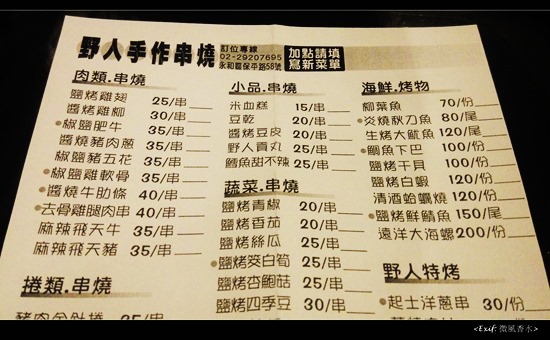 野人手作串燒
訂位專線
02-29207695
永和區保平路58號
加點請填
寫新菜單
肉類.串燒
鹽烤雞翅 25/串
醬烤雞柳 30/串
•椒鹽肥牛 35/串
醬燒豬肉蔥 35/串
椒鹽豬五花 35/串
•椒鹽雞軟骨 35/串
•醬燒牛肋條 40/串
•去骨雞腿肉串 40/串
麻辣飛天牛 35/串
麻辣飛天豬 35/串
捲類.串燒
小品.串燒
米血糕 15/串
豆乾 20/串
醬烤豆皮 20/串
野人貢丸 25/串
鱈魚甜不辣 25/串
蔬菜.串燒
鹽烤青椒 20/串
鹽烤香菇 20/串
鹽烤絲瓜 25/串
•鹽烤筊白筍 25/串
鹽烤杏鮑菇 25/串
鹽烤四季豆 30/串
海鮮.烤物
柳葉魚 70/份
•炎燒秋刀魚 80/尾
生烤大魷魚 120/尾
•鯛魚下巴 100/份
鹽烤干貝 100/份
鹽烤白蝦 120/份
清酒蛤蠣燒 120/份
•鹽烤鮮鯖魚 150/尾
遠洋大海螺 200/份
野人特烤
•起士洋蔥串 30/份
<Exif: 微風香水>